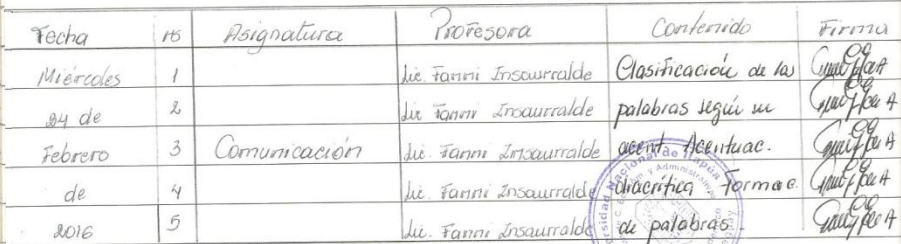 Fecha Hs Asignatura Profesora Contenido Firma
Miércoles 1 Lic. Fanni Insaurralde Clasificación de las
24 de 2 Lic. Fanni Insaurralde palabras según su
Febrero 3 Comunicación Lic. Fanni Insaurralde acent. Acentuac.
de 4 Lic. Fanni Insaurralde diacrítica Formac.
2016 5 Lic. Fanni Insaurralde de palabras